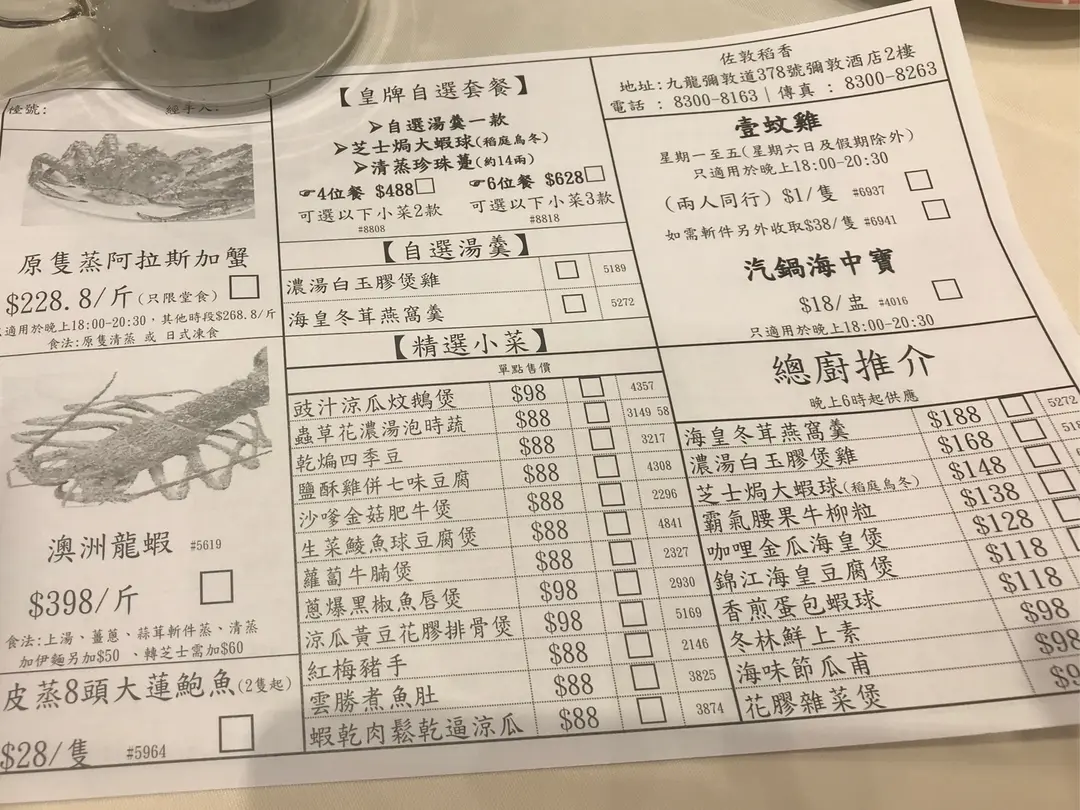 檯號: 經手人:
原隻蒸阿拉斯加蟹
$228.8/斤(只限堂食)
只適用於晚上18:00-20:30，其他時段$268.8/斤
食法:原隻清蒸 或 日式凍食
澳洲龍蝦 #5619
$398/斤
食法:上湯、薑蔥、蒜茸斬件蒸、清蒸
加伊麵另加$50 、轉芝士需加$60
皮蒸8頭大蓮鮑魚(2隻起)
$28/隻 #5964
【皇牌自選套餐】
➢自選湯羹一款
➢芝士焗大蝦球(稻庭烏冬)
➢清蒸珍珠躉(約14兩)
☞4位餐 $488 ☞6位餐 $628
可選以下小菜2款 可選以下小菜3款
#8808 #8818
【自選湯羹】
濃湯白玉膠煲雞 5189
海皇冬茸燕窩羹 5272
【精選小菜】
單點售價
豉汁涼瓜炆鵝煲 $98 4357
蟲草花濃湯泡時蔬 $88 3149 58
乾煸四季豆 $88 3217
鹽酥雞併七味豆腐 $88 4308
沙嗲金菇肥牛煲 $88 2296
生菜鯪魚球豆腐煲 $88 4841
蘿蔔牛腩煲 $88 2327
蔥爆黑椒魚唇煲 $98 2930
涼瓜黃豆花膠排骨煲 $98 5169
紅梅豬手 $88 2146
雲勝煮魚肚 $88 3825
蝦乾肉鬆乾逼涼瓜 $88 3874
佐敦稻香
地址:九龍彌敦道378號彌敦酒店2樓
電話 : 8300-8163 | 傳真 : 8300-8263
壹蚊雞
星期一至五(星期六日及假期除外)
只適用於晚上18:00-20:30
(兩人同行) $1/隻 #6937
如需斬件另外收取$38/隻 #6941
汽鍋海中寶
$18/盅 #4016
只適用於晚上18:00-20:30
總廚推介
晚上6時起供應
海皇冬茸燕窩羹 $188 5272
濃湯白玉膠煲雞 $168
芝士焗大蝦球(稻庭烏冬) $148
霸氣腰果牛柳粒 $138
咖哩金瓜海皇煲 $128
錦江海皇豆腐煲 $118
香煎蛋包蝦球 $118
冬林鮮上素 $98
海味節瓜甫 $98
花膠雜菜煲